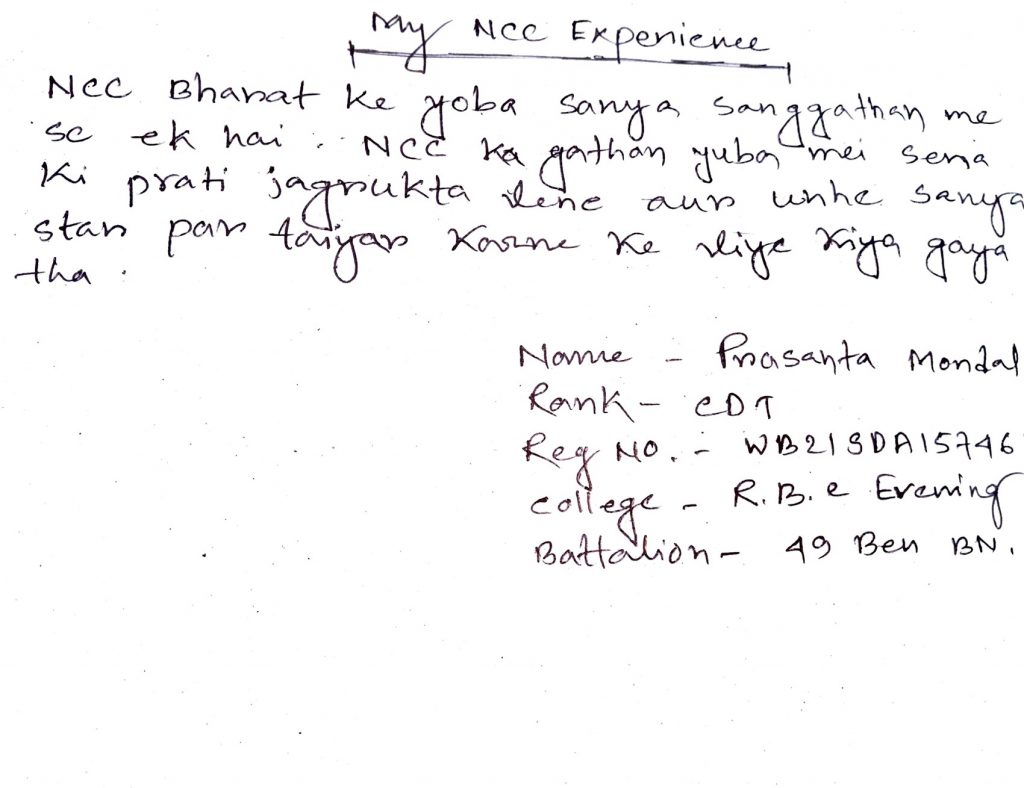 My NCC Experience
NCC Bharat ke yoba sanya sanggathan me
se ek hai. NCC ka gathan yuba mei sena
Ki prati jagrukta lene aur unhe sanya
star par taiyar karne ke liye kiya gaya
tha.
Name - Prasanta Mondal
Rank - CDT
Reg NO. - WB21SDA15746
college - R.B.C Evening
Battalion - 49 Ben BN.